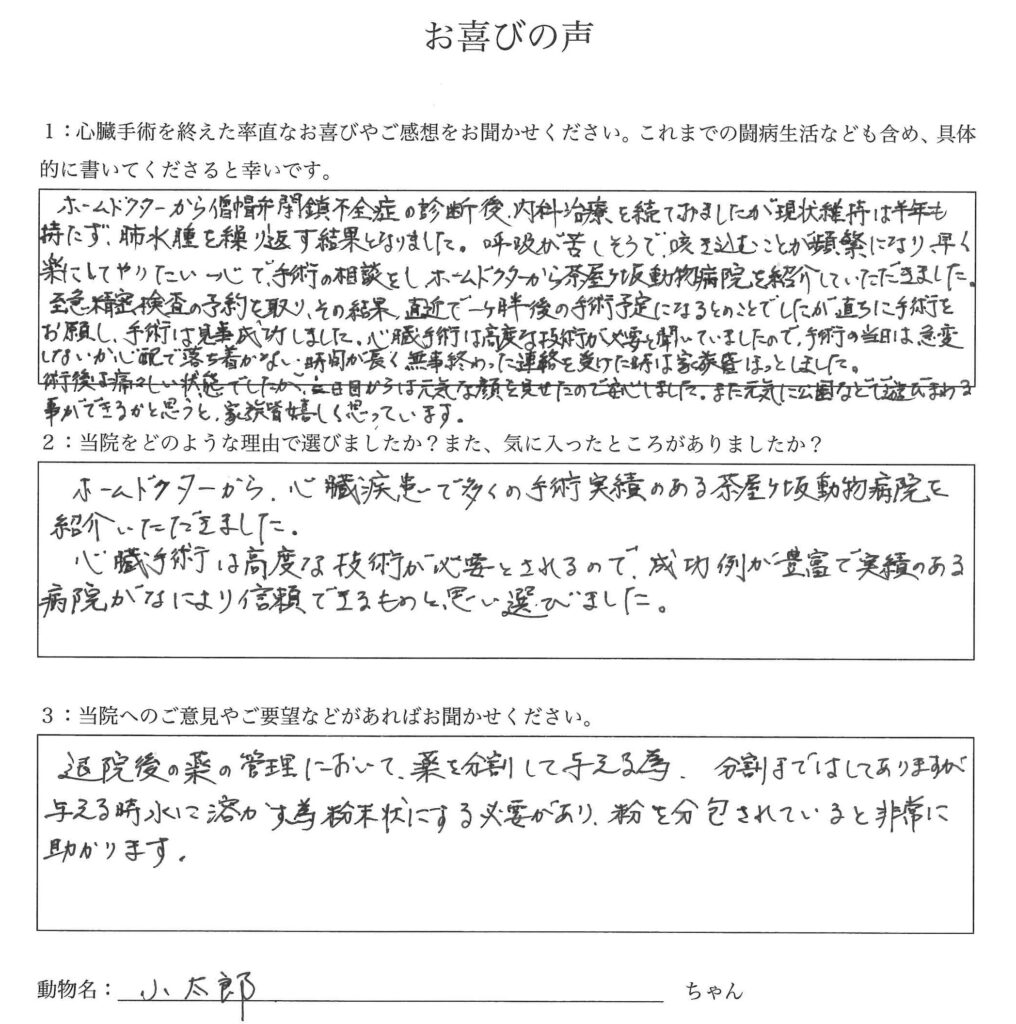 お喜びの声
1：心臓手術を終えた率直なお喜びやご感想をお聞かせください。これまでの闘病生活なども含め、具体
的に書いてくださると幸いです。
ホームドクターから僧帽弁閉鎖不全症の診断後、内科治療を続ておりましたが現状維持は半年も
持たず、肺水腫を繰り返す結果となりました。呼吸が苦しそうで、咳き込むことが頻繁になり、早く
楽にしてやりたい一心で、手術の相談をし、ホームドクターから茶屋ヶ坂動物病院を紹介していただきました。
至急精密検査の予約を取り、その結果、直近で一ヶ月半後の手術予定になるとのことでしたが直ちに手術を
お願し、手術は見事成功しました。心臓手術は高度な技術が必要と聞いていましたので、手術の当日は、急変
しないか心配で落ち着かない時間が長く無事終わった連絡を受けた時は家族皆ほっとしました。
術後は痛々しい状態でしたが、三日目からは元気な顔を見せたので安心しました。また元気に公園などで遊びまわる
事ができるかと思うと、家族皆嬉しく思っています。
2：当院をどのような理由で選びましたか？また、気に入ったところがありましたか？
ホームドクターから、心臓疾患で多くの手術実績のある茶屋ヶ坂動物病院を
紹介いただきました。
心臓手術は高度な技術が必要とされるので、成功例が豊富で実績のある
病院がなにより信頼できるものと思い選びました。
3：当院へのご意見やご要望などがあればお聞かせください。
退院後の薬の管理において、薬を分割して与える為、分割まではしてありますが
与える時水に溶かす為粉末状にする必要があり、粉を分包されていると非常に
助かります。
動物名：小太郎 ちゃん